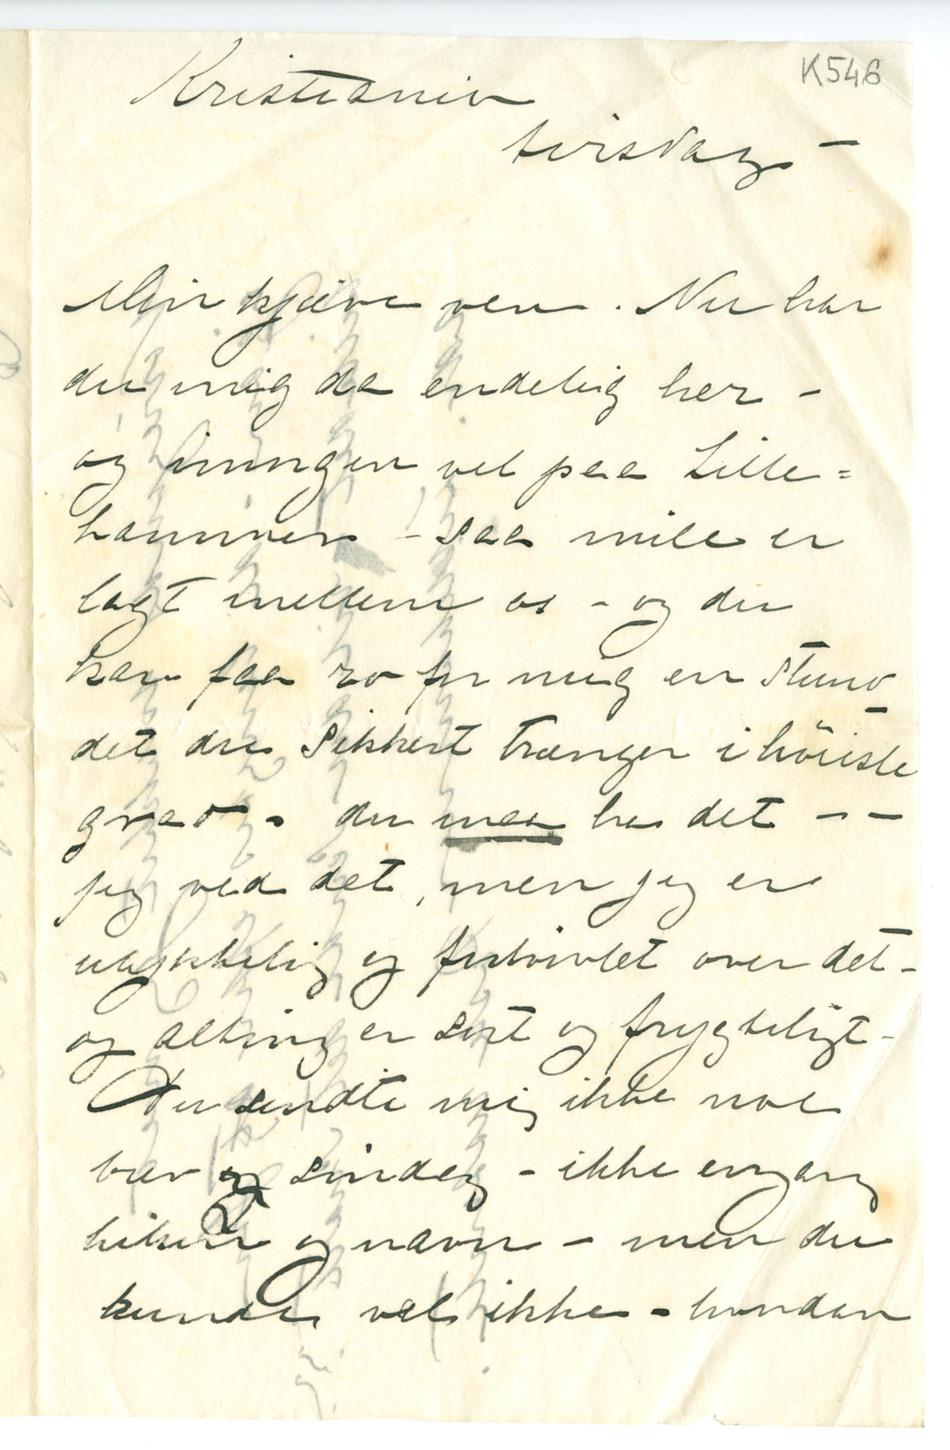 K546
Kristiania
tirsdag –
Min kjære ven. Nu har
du mig da endelig her –
og ingen vel paa Lille=
hammer – saa mile er
lagt mellem os – og du
kan faa ro for mig en stund
det du sikkert trænger i høieste
grad. du maa ha det – –
jeg ved det, men jeg er
ulykkelig og fortvivlet over det –
og alting er sort og frygteligt –
Du sendte mig ikke noe
brev søndag – ikke engang
hilsen og navn – men du
kunde vel ikke – hvordan